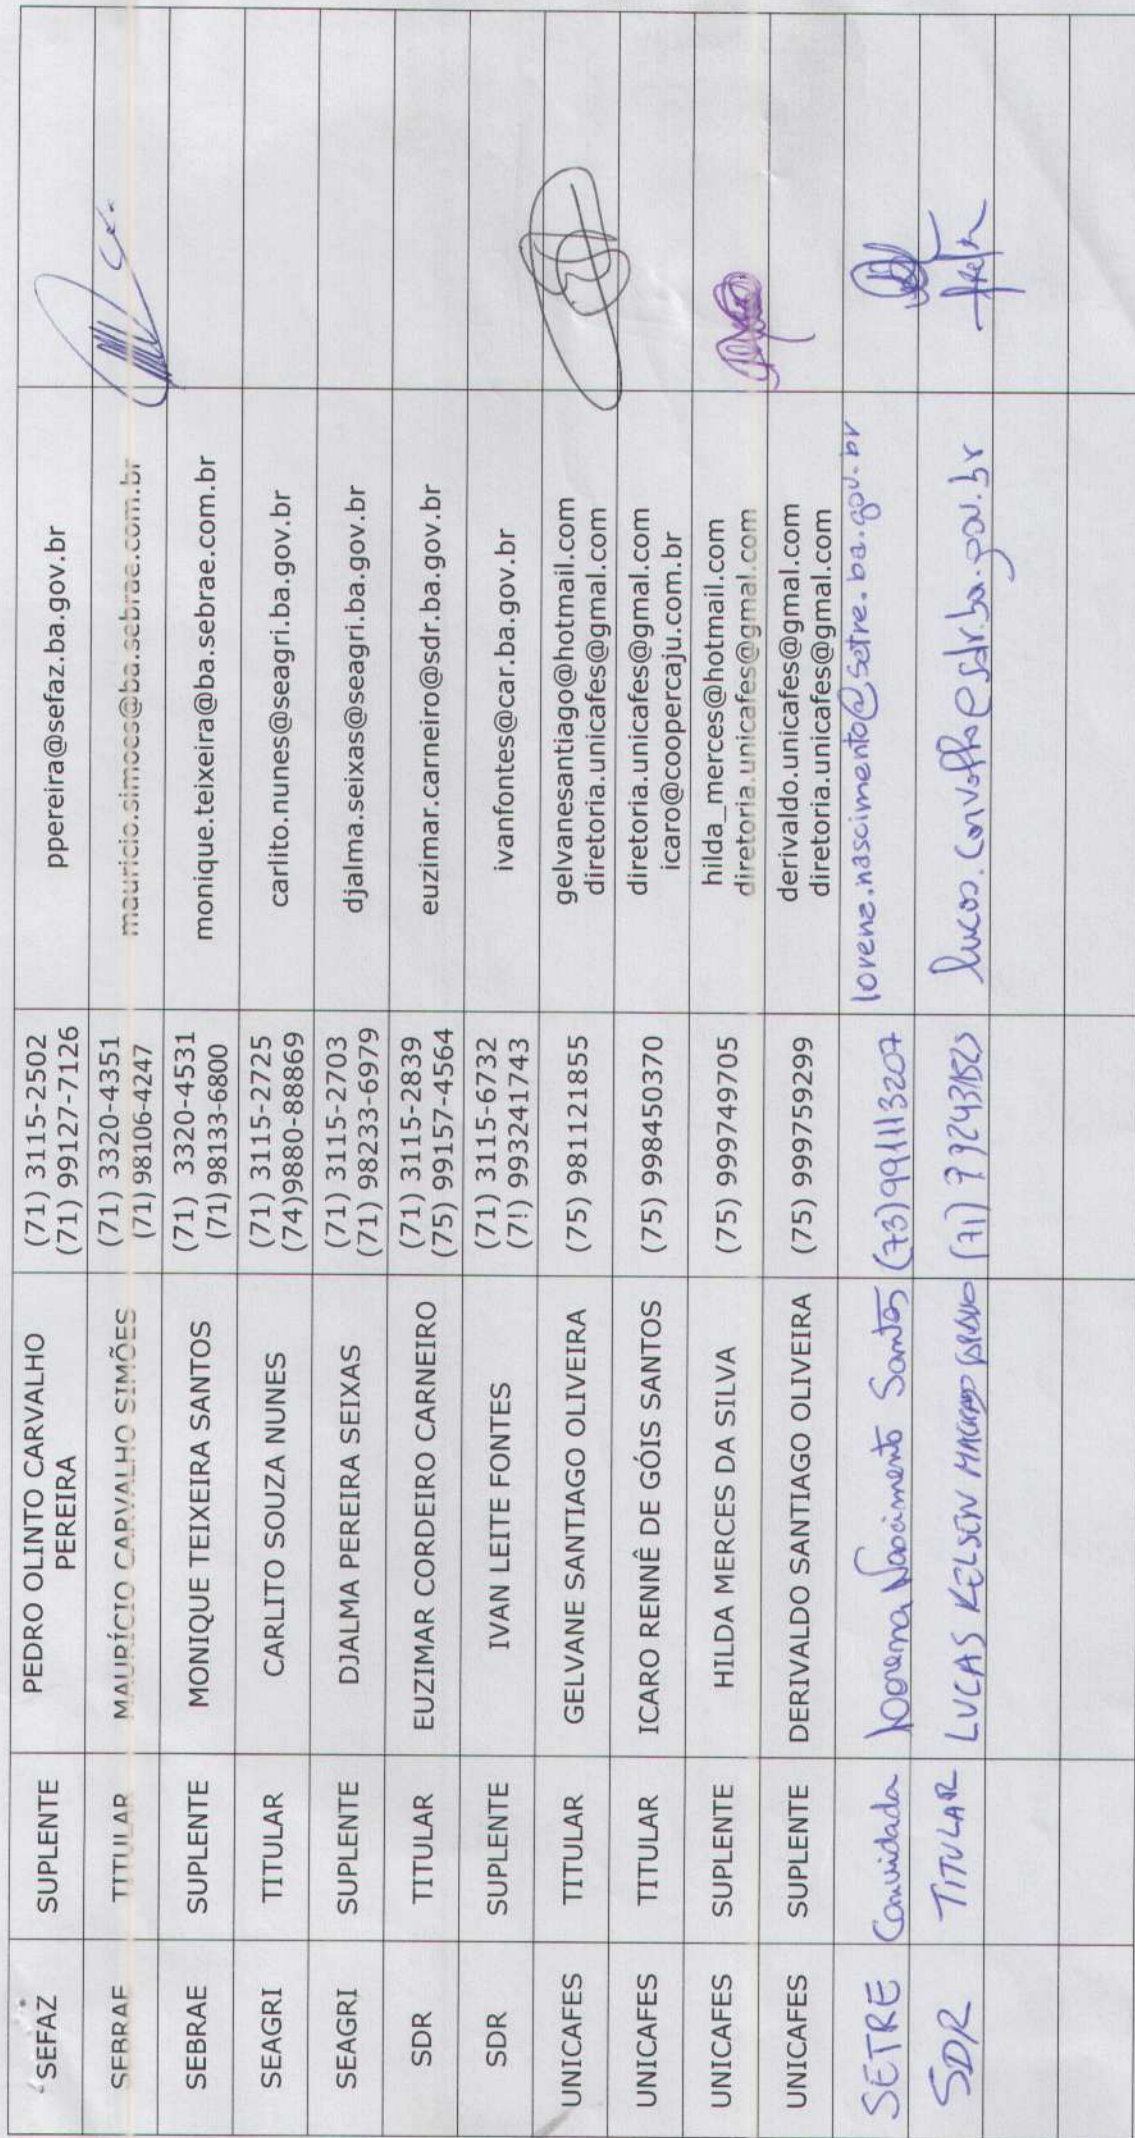 SEFAZ SUPLENTE PEDRO OLINTO CARVALHO (71) 3115-2502 ppereira@sefaz.ba.gov.br
PEREIRA (71) 99127-7126
SEBRAE TITULAR MAURÍCIO CARVALHO SIMÕES (71) 3320-4351 mauricio.simoes@ba.sebrae.com.br
(71) 98106-4247
SEBRAE SUPLENTE MONIQUE TEIXEIRA SANTOS (71) 3320-4531 monique.teixeira@ba.sebrae.com.br
(71) 98133-6800
SEAGRI TITULAR CARLITO SOUZA NUNES (71) 3115-2725 carlito.nunes@seagri.ba.gov.br
(74)9880-88869
SEAGRI SUPLENTE DJALMA PEREIRA SEIXAS (71) 3115-2703 djalma.seixas@seagri.ba.gov.br
(71) 98233-6979
SDR TITULAR EUZIMAR CORDEIRO CARNEIRO (71) 3115-2839 euzimar.carneiro@sdr.ba.gov.br
(75) 99157-4564
SDR SUPLENTE IVAN LEITE FONTES (71) 3115-6732 ivanfontes@car.ba.gov.br
(7!) 993241743
UNICAFES TITULAR GELVANE SANTIAGO OLIVEIRA (75) 981121855 gelvanesantiago@hotmail.com
diretoria.unicafes@gmal.com
UNICAFES TITULAR ICARO RENNÊ DE GÓIS SANTOS (75) 998450370 diretoria.unicafes@gmal.com
icaro@coopercaju.com.br
UNICAFES SUPLENTE HILDA MERCES DA SILVA (75) 999749705 hilda_merces@hotmail.com
diretoria.unicafes@gmal.com
UNICAFES SUPLENTE DERIVALDO SANTIAGO OLIVEIRA (75) 999759299 derivaldo.unicafes@gmal.com
diretoria.unicafes@gmal.com
SETRE Convidada Lorena Nascimento Santos (73)991113207 lorena.nascimento@setre.ba.gov.br
SDR TITULAR LUCAS KELSON MACHADO (71) lucas.carvalho@sdr.ba.gov.br